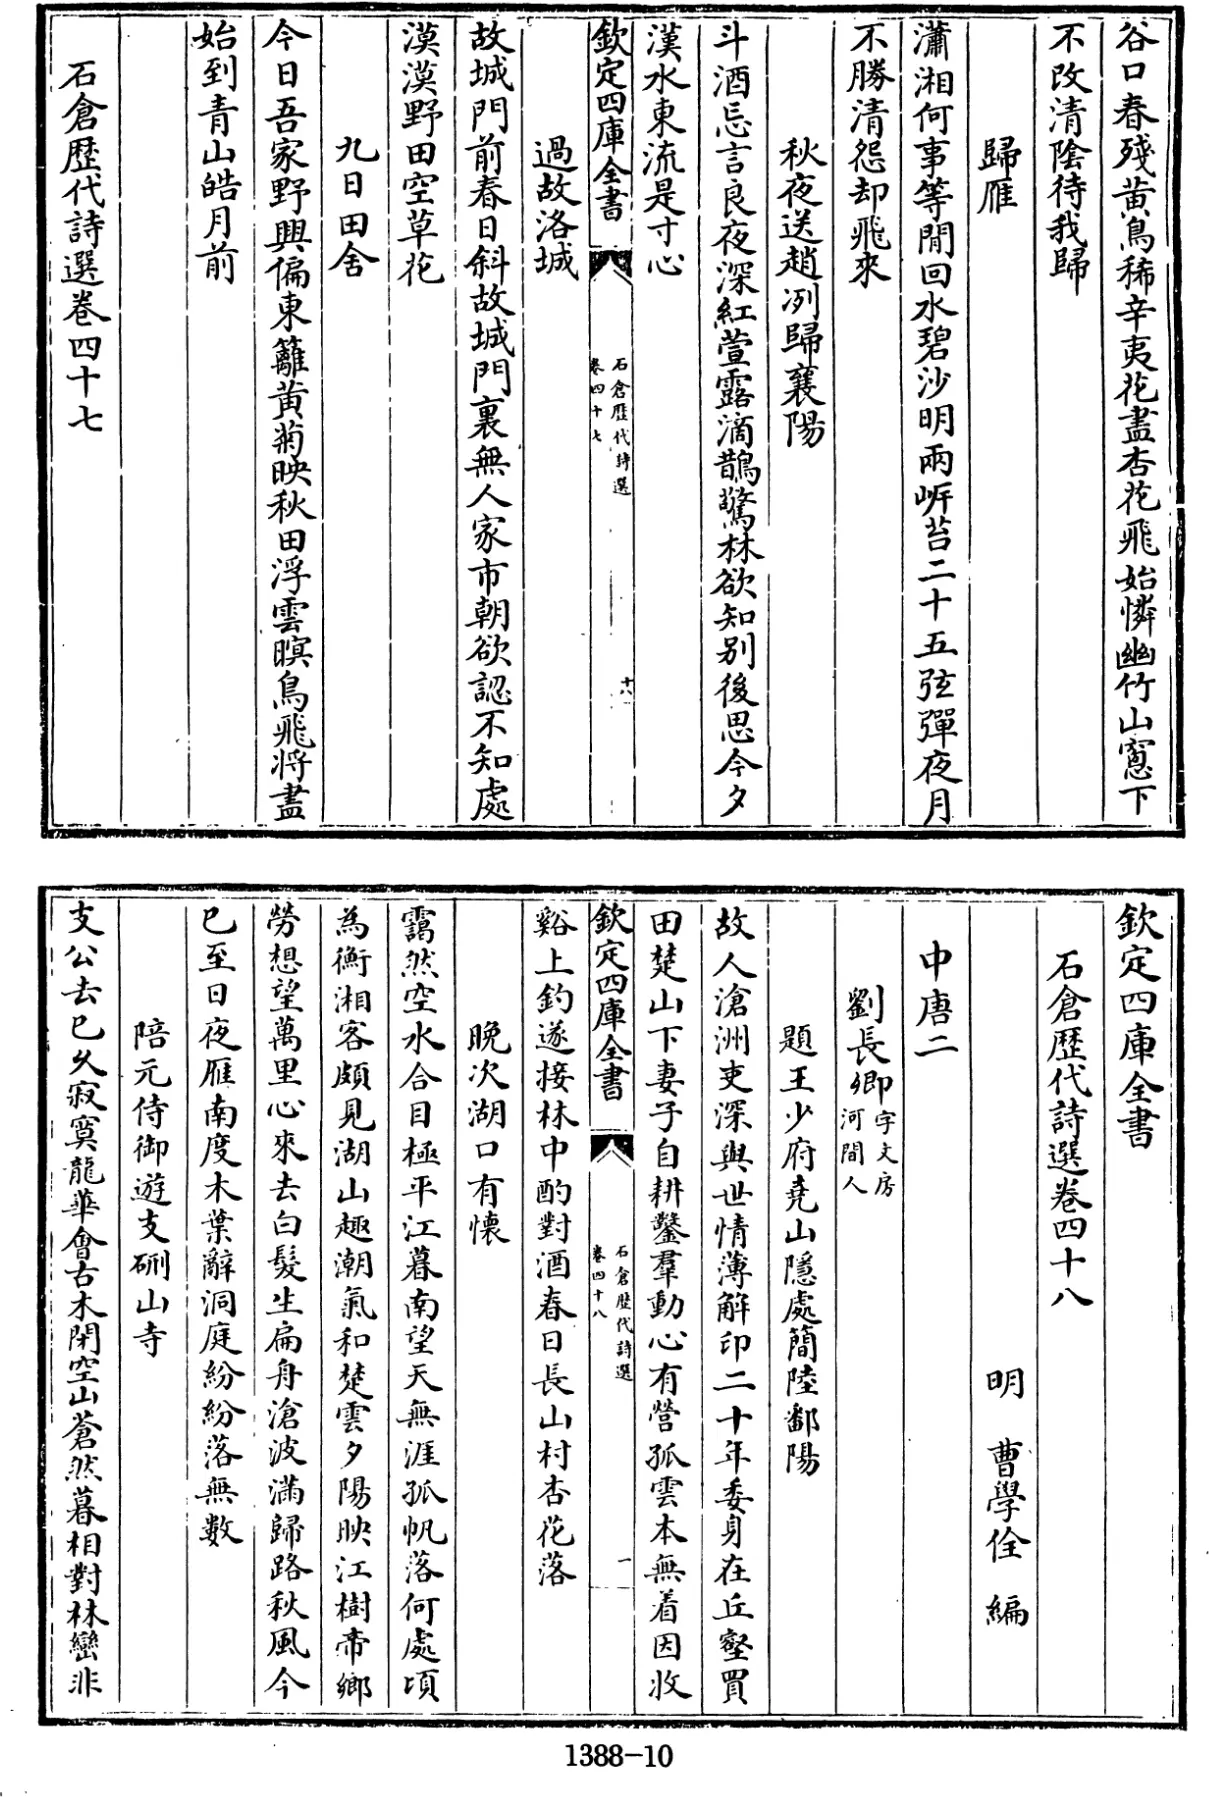 谷口春殘黄鳥稀辛夷花盡杏花飛始憐幽竹山窻下
不改清陰待我歸
歸雁
瀟湘何事等閒回水碧沙明兩㟁苔二十五弦彈夜月
不勝清怨却飛來
秋夜送趙冽歸襄陽
斗酒忘言良夜深紅萱露滴鵲驚林欲知别後思今夕
漢水東流是寸心
欽定四庫全書
石倉歷代詩選
卷四十七
十八
過故洛城
故城門前春日斜故城門裏無人家市朝欲認不知處
漠漠野田空草花
九日田舍
今日吾家野興偏東籬黄菊映秋田浮雲暝鳥飛將盡
始到青山皓月前
石倉歷代詩選卷四十七
欽定四庫全書
石倉歷代詩選卷四十八
明 曹學佺 編
中唐二
劉長卿字文房河間人
題王少府堯山隱處簡陸鄱陽
故人滄洲吏深與世情薄解印二十年委身在丘壑買
田楚山下妻子自耕鑿羣動心有營孤雲本無着因收
欽定四庫全書
石倉歷代詩選
卷四十八
一
谿上釣遂接林中酌對酒春日長山村杏花落
晩次湖口有懷
靄然空水合目極平江暮南望天無涯孤帆落何處頃
為衡湘客頗見湖山趣潮氣和楚雲夕陽映江樹帝鄉
勞想望萬里心來去白髮生扁舟滄波滿歸路秋風今
已至日夜雁南度木葉辭洞庭紛紛落無數
陪元侍御遊支硎山寺
支公去已久寂寞龍華會古木閉空山蒼然暮相對林巒非
1388-10